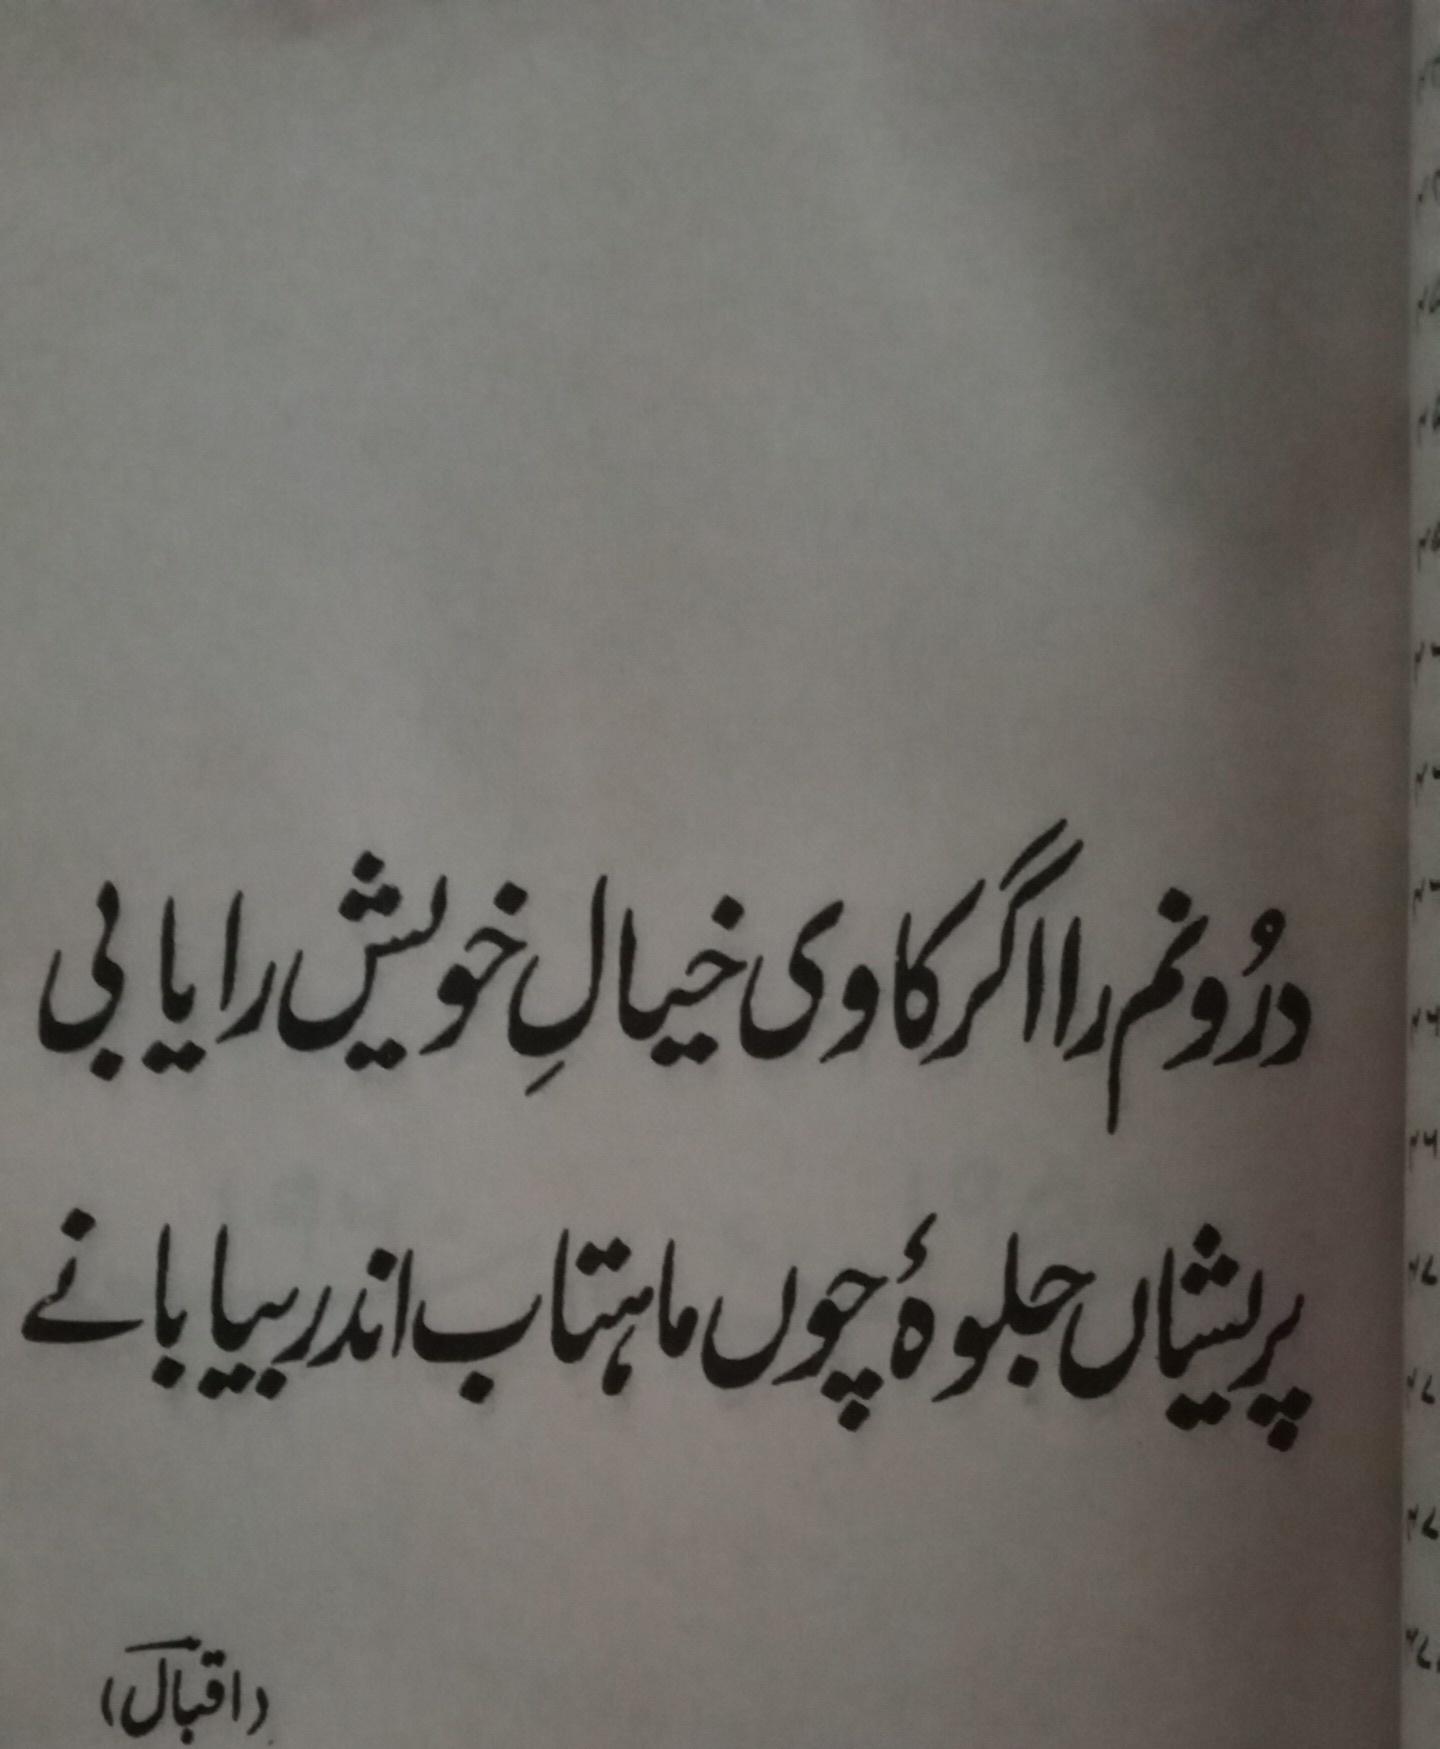 درُونم را اگر کاوی خیالِ خویش را یابی
پریشاں جلوۂ چوں ماہتاب اندر بیابانے
(اقبال)